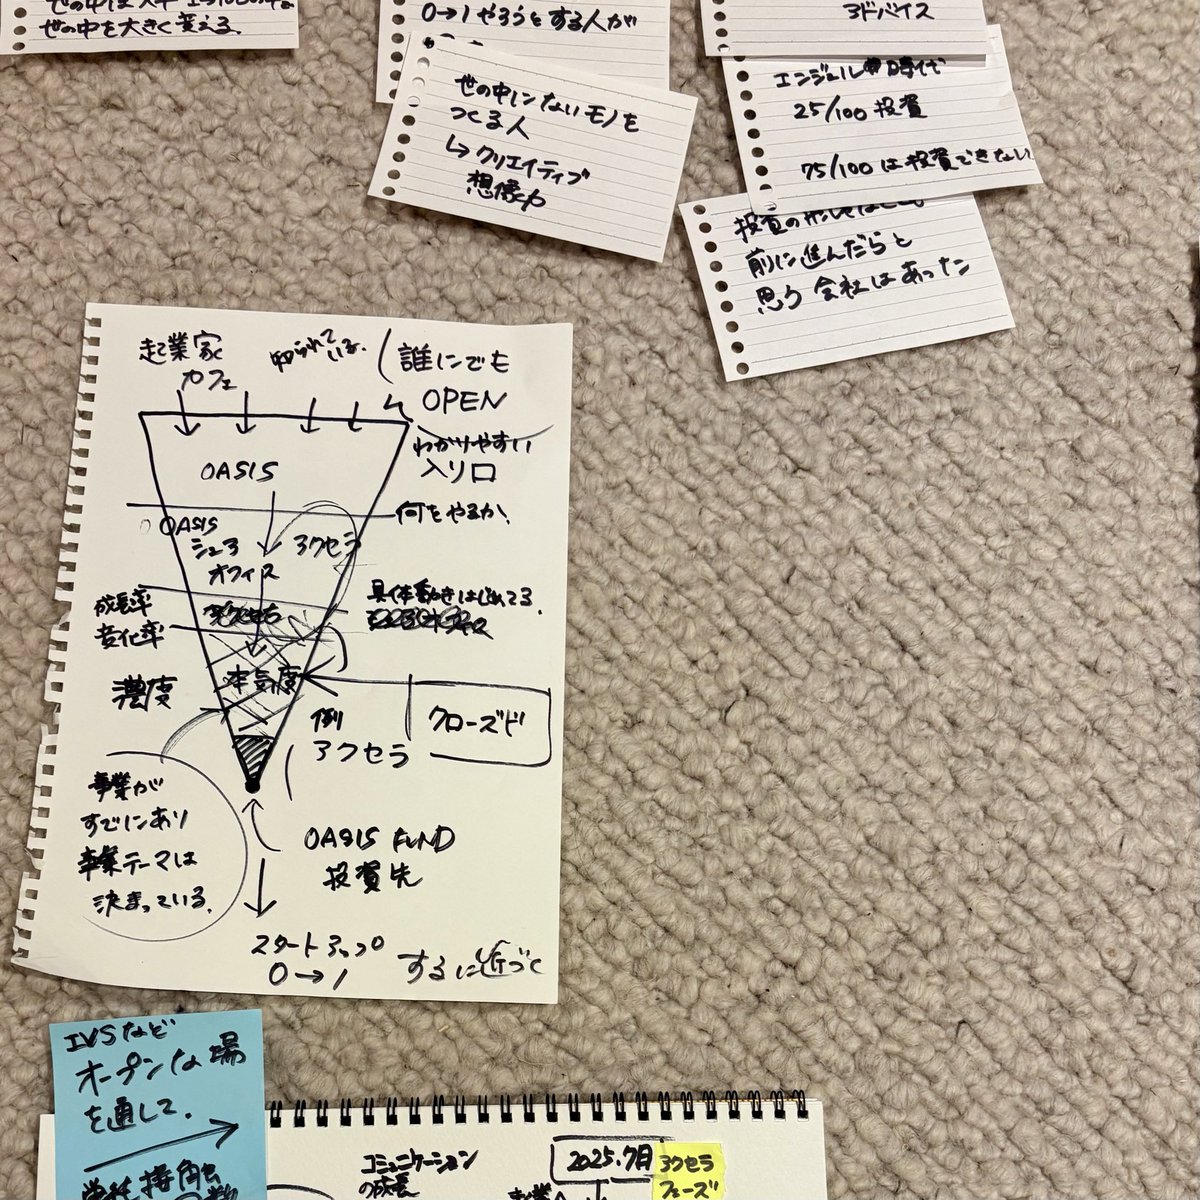 世の中を大きく変える.
0→1 やろうとする人が
アドバイス
世の中にないモノを
つくる人
↳ クリエイティブ
想像力
エンジェル時代
25/100 投資
75/100 は投資できない
前に進んだらと
思う 会社はあった
起業家
カフェ
知られて
いる.
誰にでも
OPEN
わかりやすい
入り口
OASIS
何をやるか.
OASIS
シェア
オフィス
アクセラ
成長率
変化率
具体動きはじめてる.
濃度
本気度
例
アクセラ
クローズド
事業が
すでにあり
事業テーマは
決まっている.
OASIS FUND
投資先
スタートアップ
0→1 するに近づく
IVSなど
オープンな場
を通して.
コミュニケーション
の成長
2025.7月
アクセラ
フェーズ